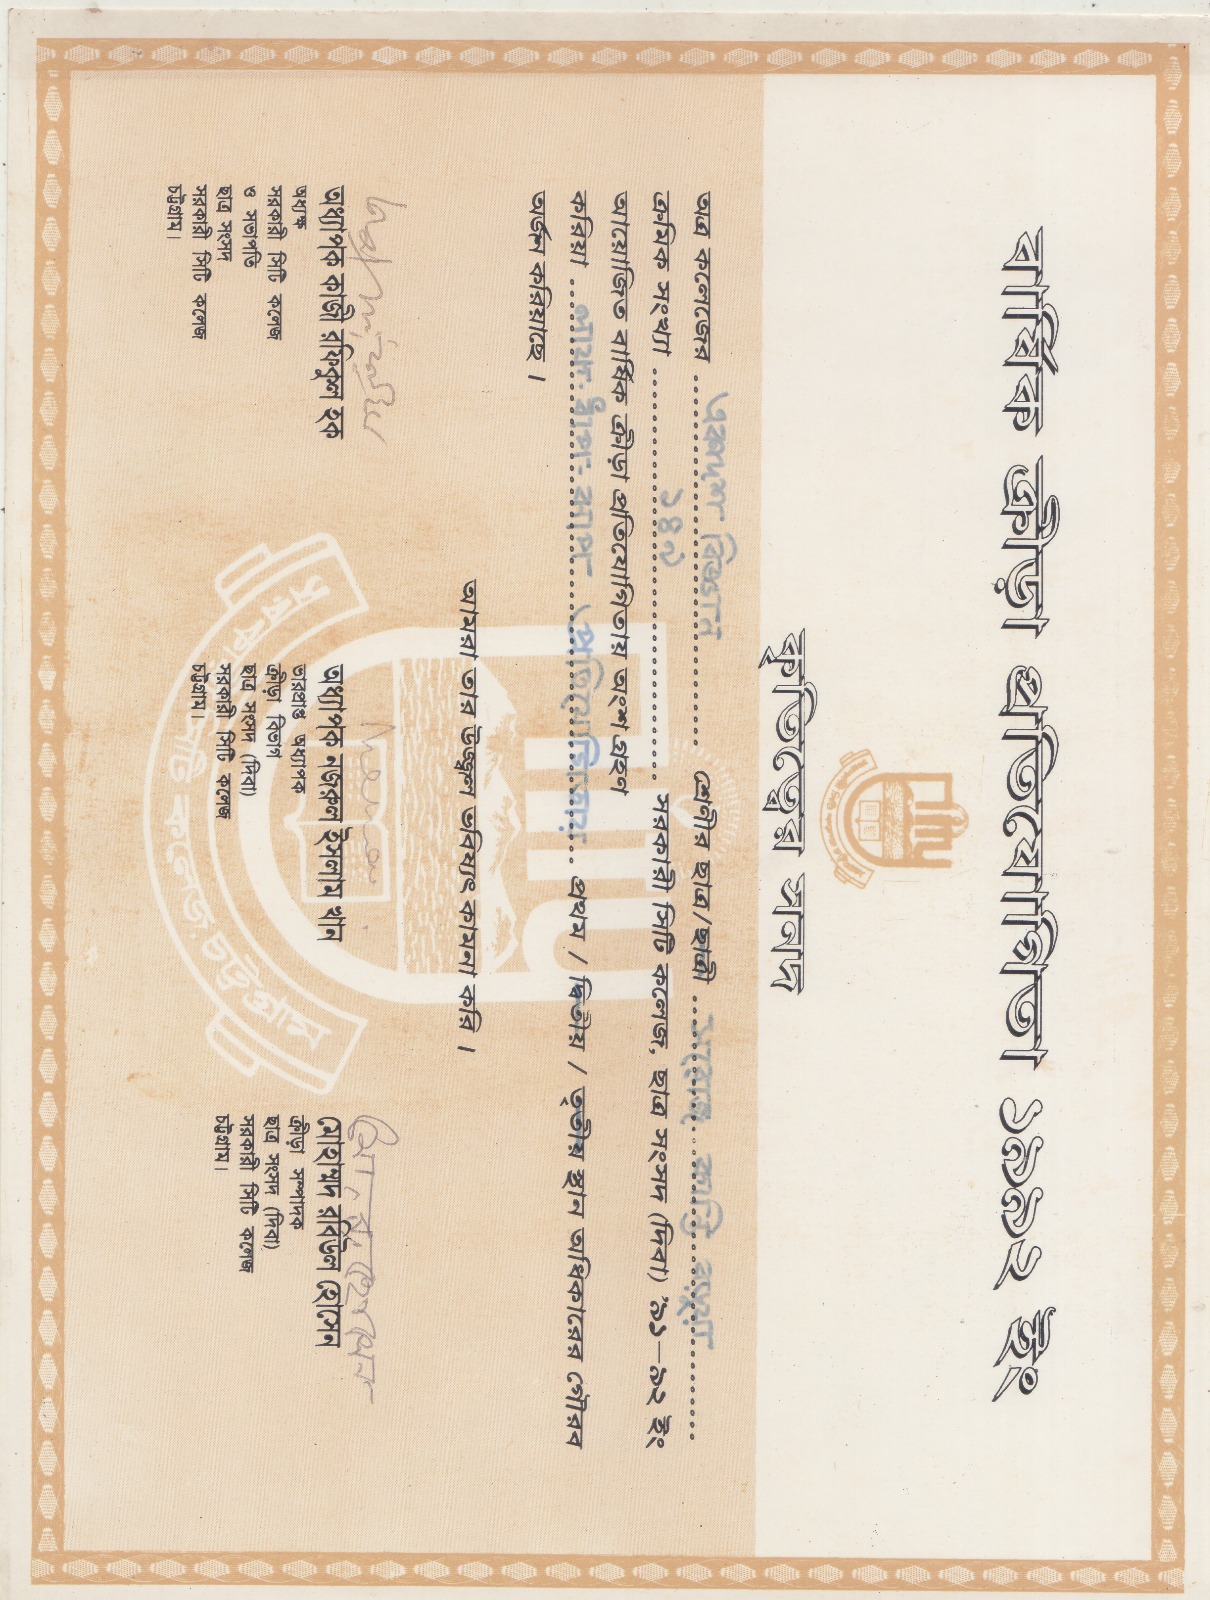 বার্ষিক ক্রীড়া প্রতিযোগিতা ১৯৯২ ইং
সরকারী সিটি কলেজ, চট্টগ্রাম
কৃতিত্বের সনদ
অত্র কলেজের একাদশ বিজ্ঞান শ্রেণীর ছাত্র/ছাত্রী সরোজ কান্তি বড়ুয়া
ক্রমিক সংখ্যা ১৪৯ সরকারী সিটি কলেজ, ছাত্র সংসদ (দিবা) '৯১–৯২ ইং
আয়োজিত বার্ষিক ক্রীড়া প্রতিযোগিতায় অংশ গ্রহণ
করিয়া লাফ-ধাপ-ঝাপ প্রতিযোগিতায় প্রথম / দ্বিতীয় / তৃতীয় স্থান অধিকারের গৌরব
অর্জন করিয়াছে।
আমরা তার উজ্জ্বল ভবিষ্যৎ কামনা করি।
অধ্যাপক কাজী রফিকুল হক
অধ্যক্ষ
সরকারী সিটি কলেজ
ও সভাপতি
ছাত্র সংসদ
সরকারী সিটি কলেজ
চট্টগ্রাম।
অধ্যাপক নজরুল ইসলাম খান
ভারপ্রাপ্ত অধ্যাপক
ক্রীড়া বিভাগ
ছাত্র সংসদ (দিবা)
সরকারী সিটি কলেজ
চট্টগ্রাম।
মোহাম্মদ রবিউল হোসেন
ক্রীড়া সম্পাদক
ছাত্র সংসদ (দিবা)
সরকারী সিটি কলেজ
চট্টগ্রাম।
সরকারী সিটি কলেজ, চট্টগ্রাম